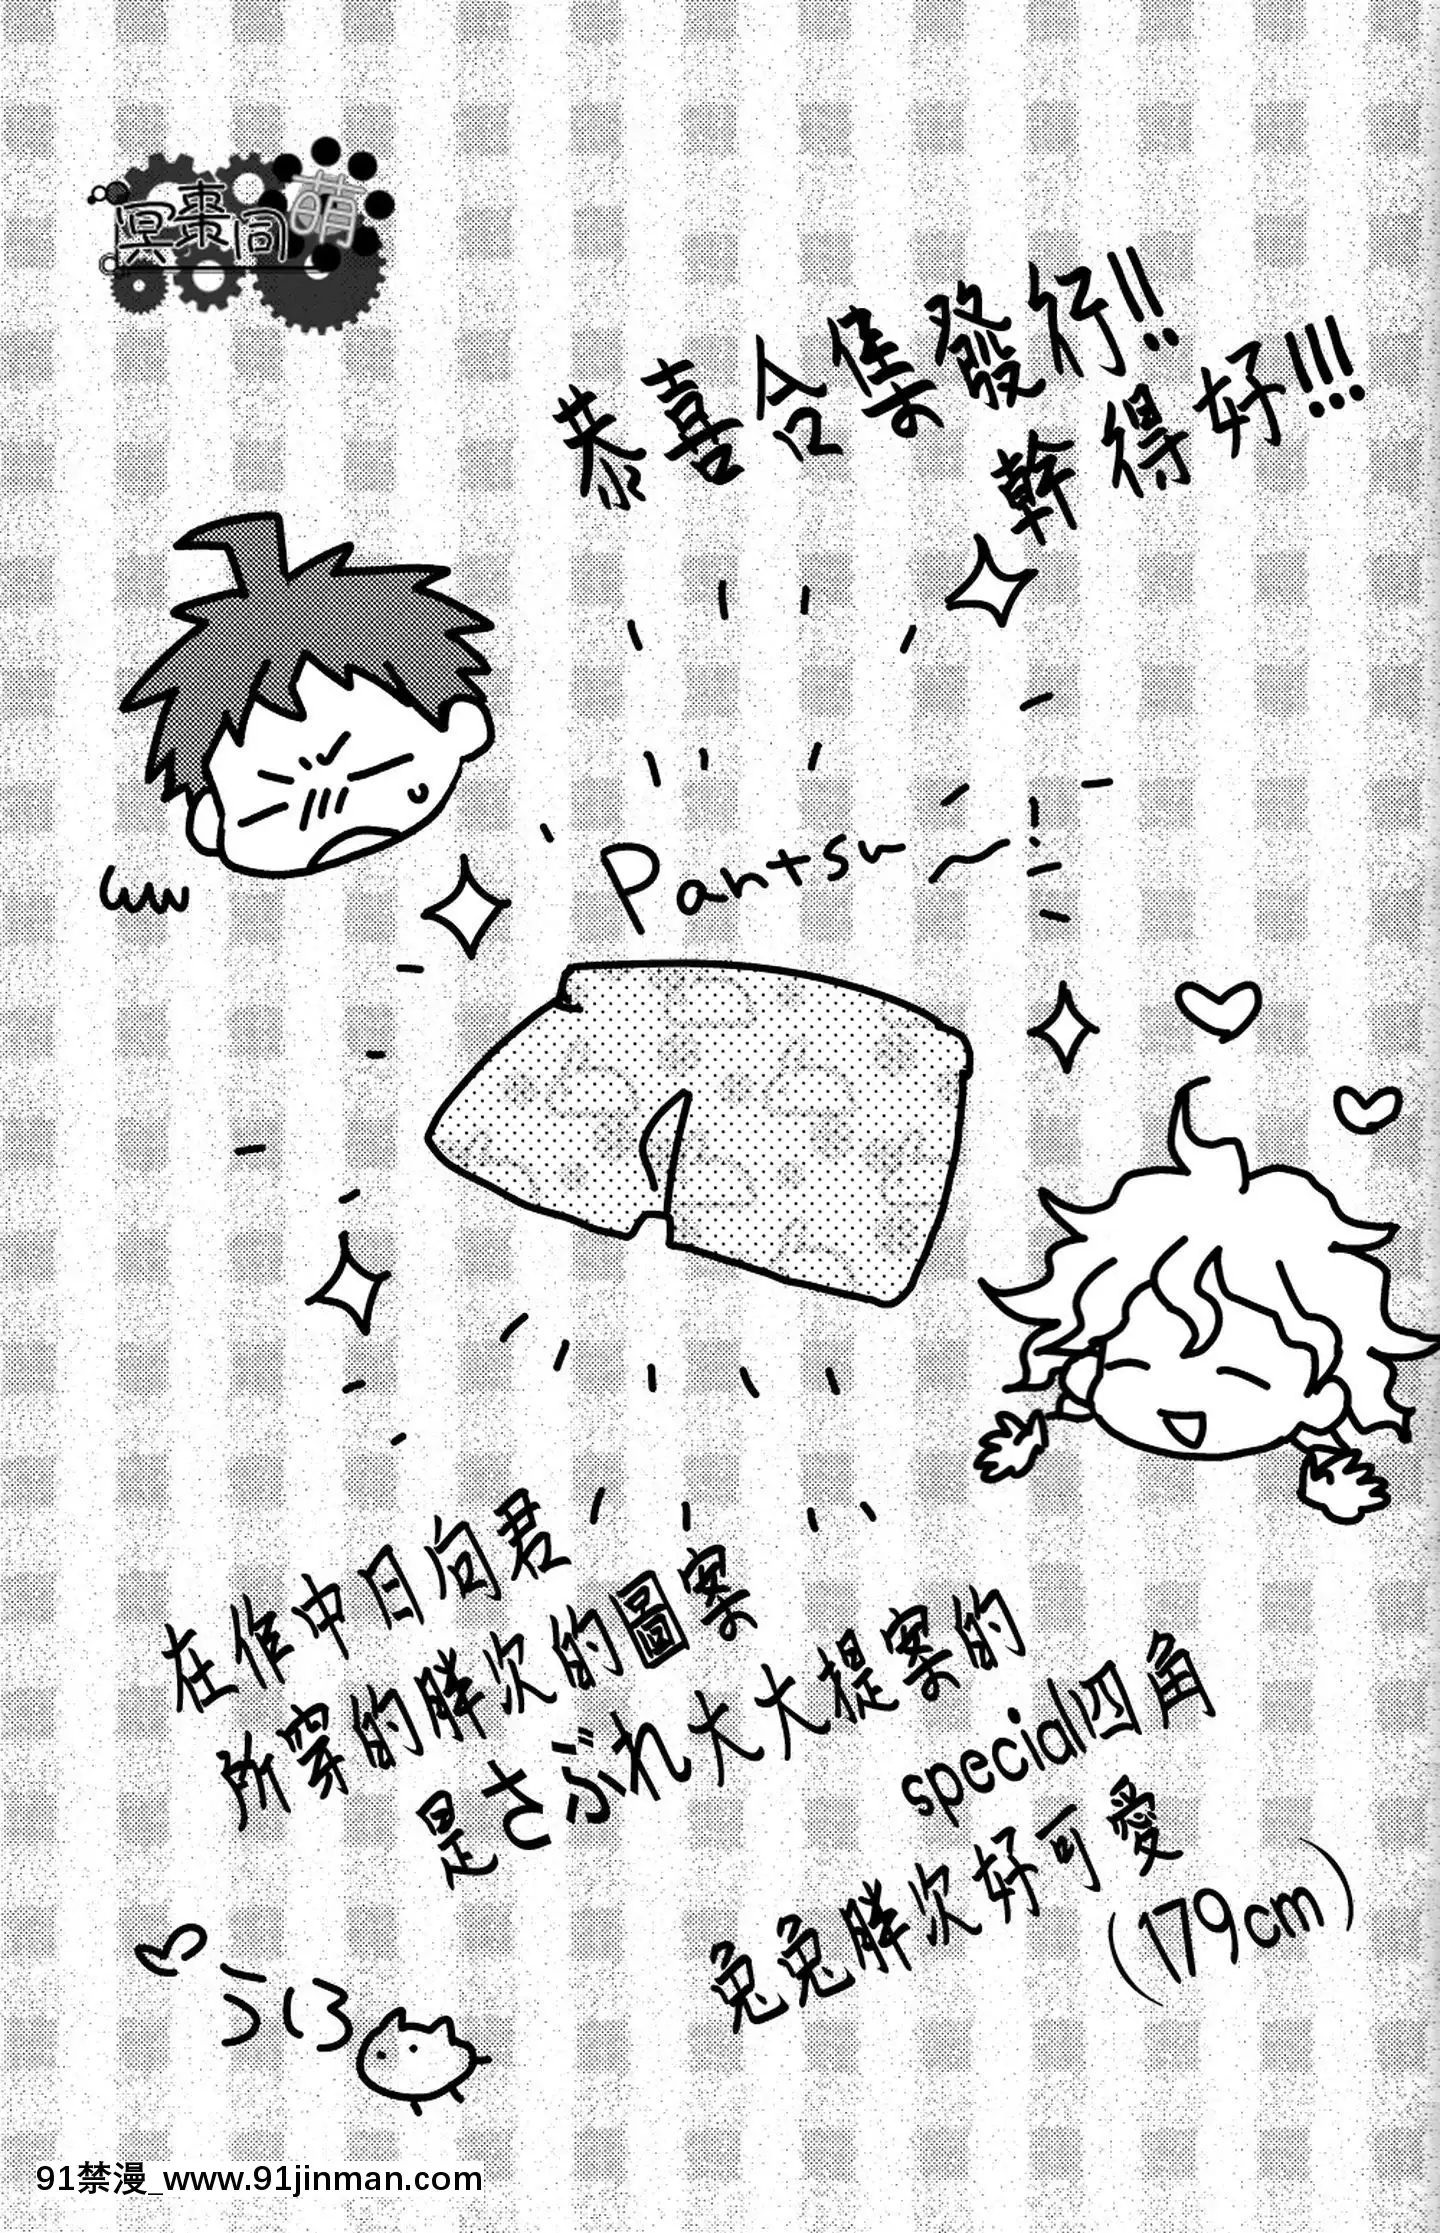 冥棗同萌
恭喜合集發行!!
幹得好!!!
Pantsu～!
在作中日向君
所穿的胖次的圖案
是さぶれ大大提案的
special四角
兔兔胖次好可愛
(179cm)
91禁漫_www.91jinman.com